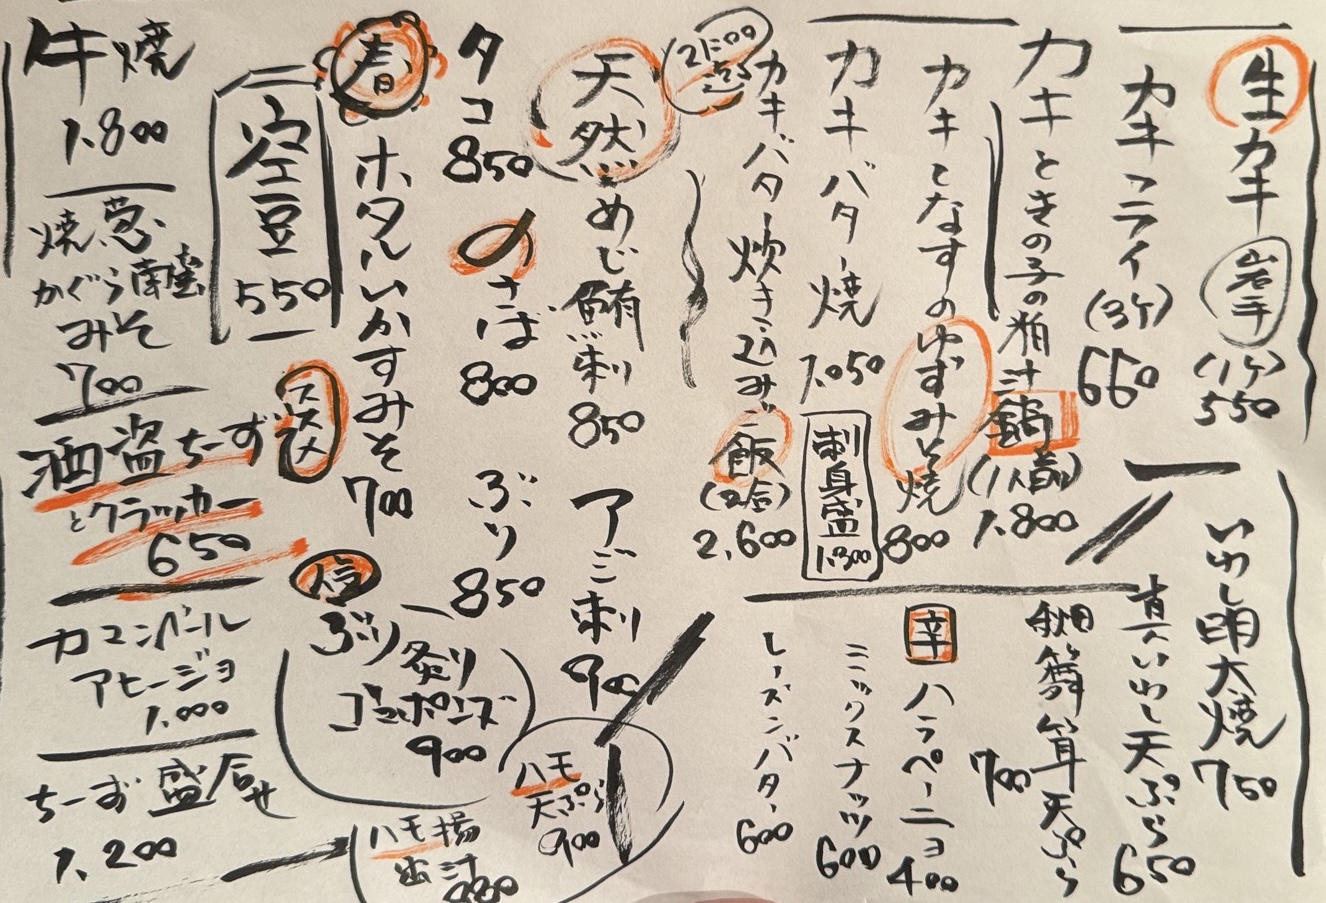 生カキ 岩手 (1ケ) 550
カキフライ (3ケ) 660
カキときの子の粕汁鍋 (1人前) 1.800
カキとなすのゆずみそ焼 800
カキバター焼 1.050
刺身盛 1.300
21:00
カキバター炊き込みご飯 (2合) 2,600
天然めじ鮪刺 850
アゴ刺 900
タコ 850
〆さば 800
ぶり 850
春
ホタルいかすみそ 700
空豆 550
牛焼
1.800
焼葱
かぐら南蛮
みそ
700
ススメ
酒盗ちーず
とクラッカー
650
カマンベール
アヒージョ
1.000
ちーず盛合せ
1,200
いわし明太焼 750
真いわし天ぷら 650
畑舞茸天ぷら 700
辛 ハラペーニョ 400
ミックスナッツ 600
レーズンバター 600
ハモ
天ぷら
900
人気
ぶり炙り
ゴマポンズ
900
ハモ揚
出汁
980